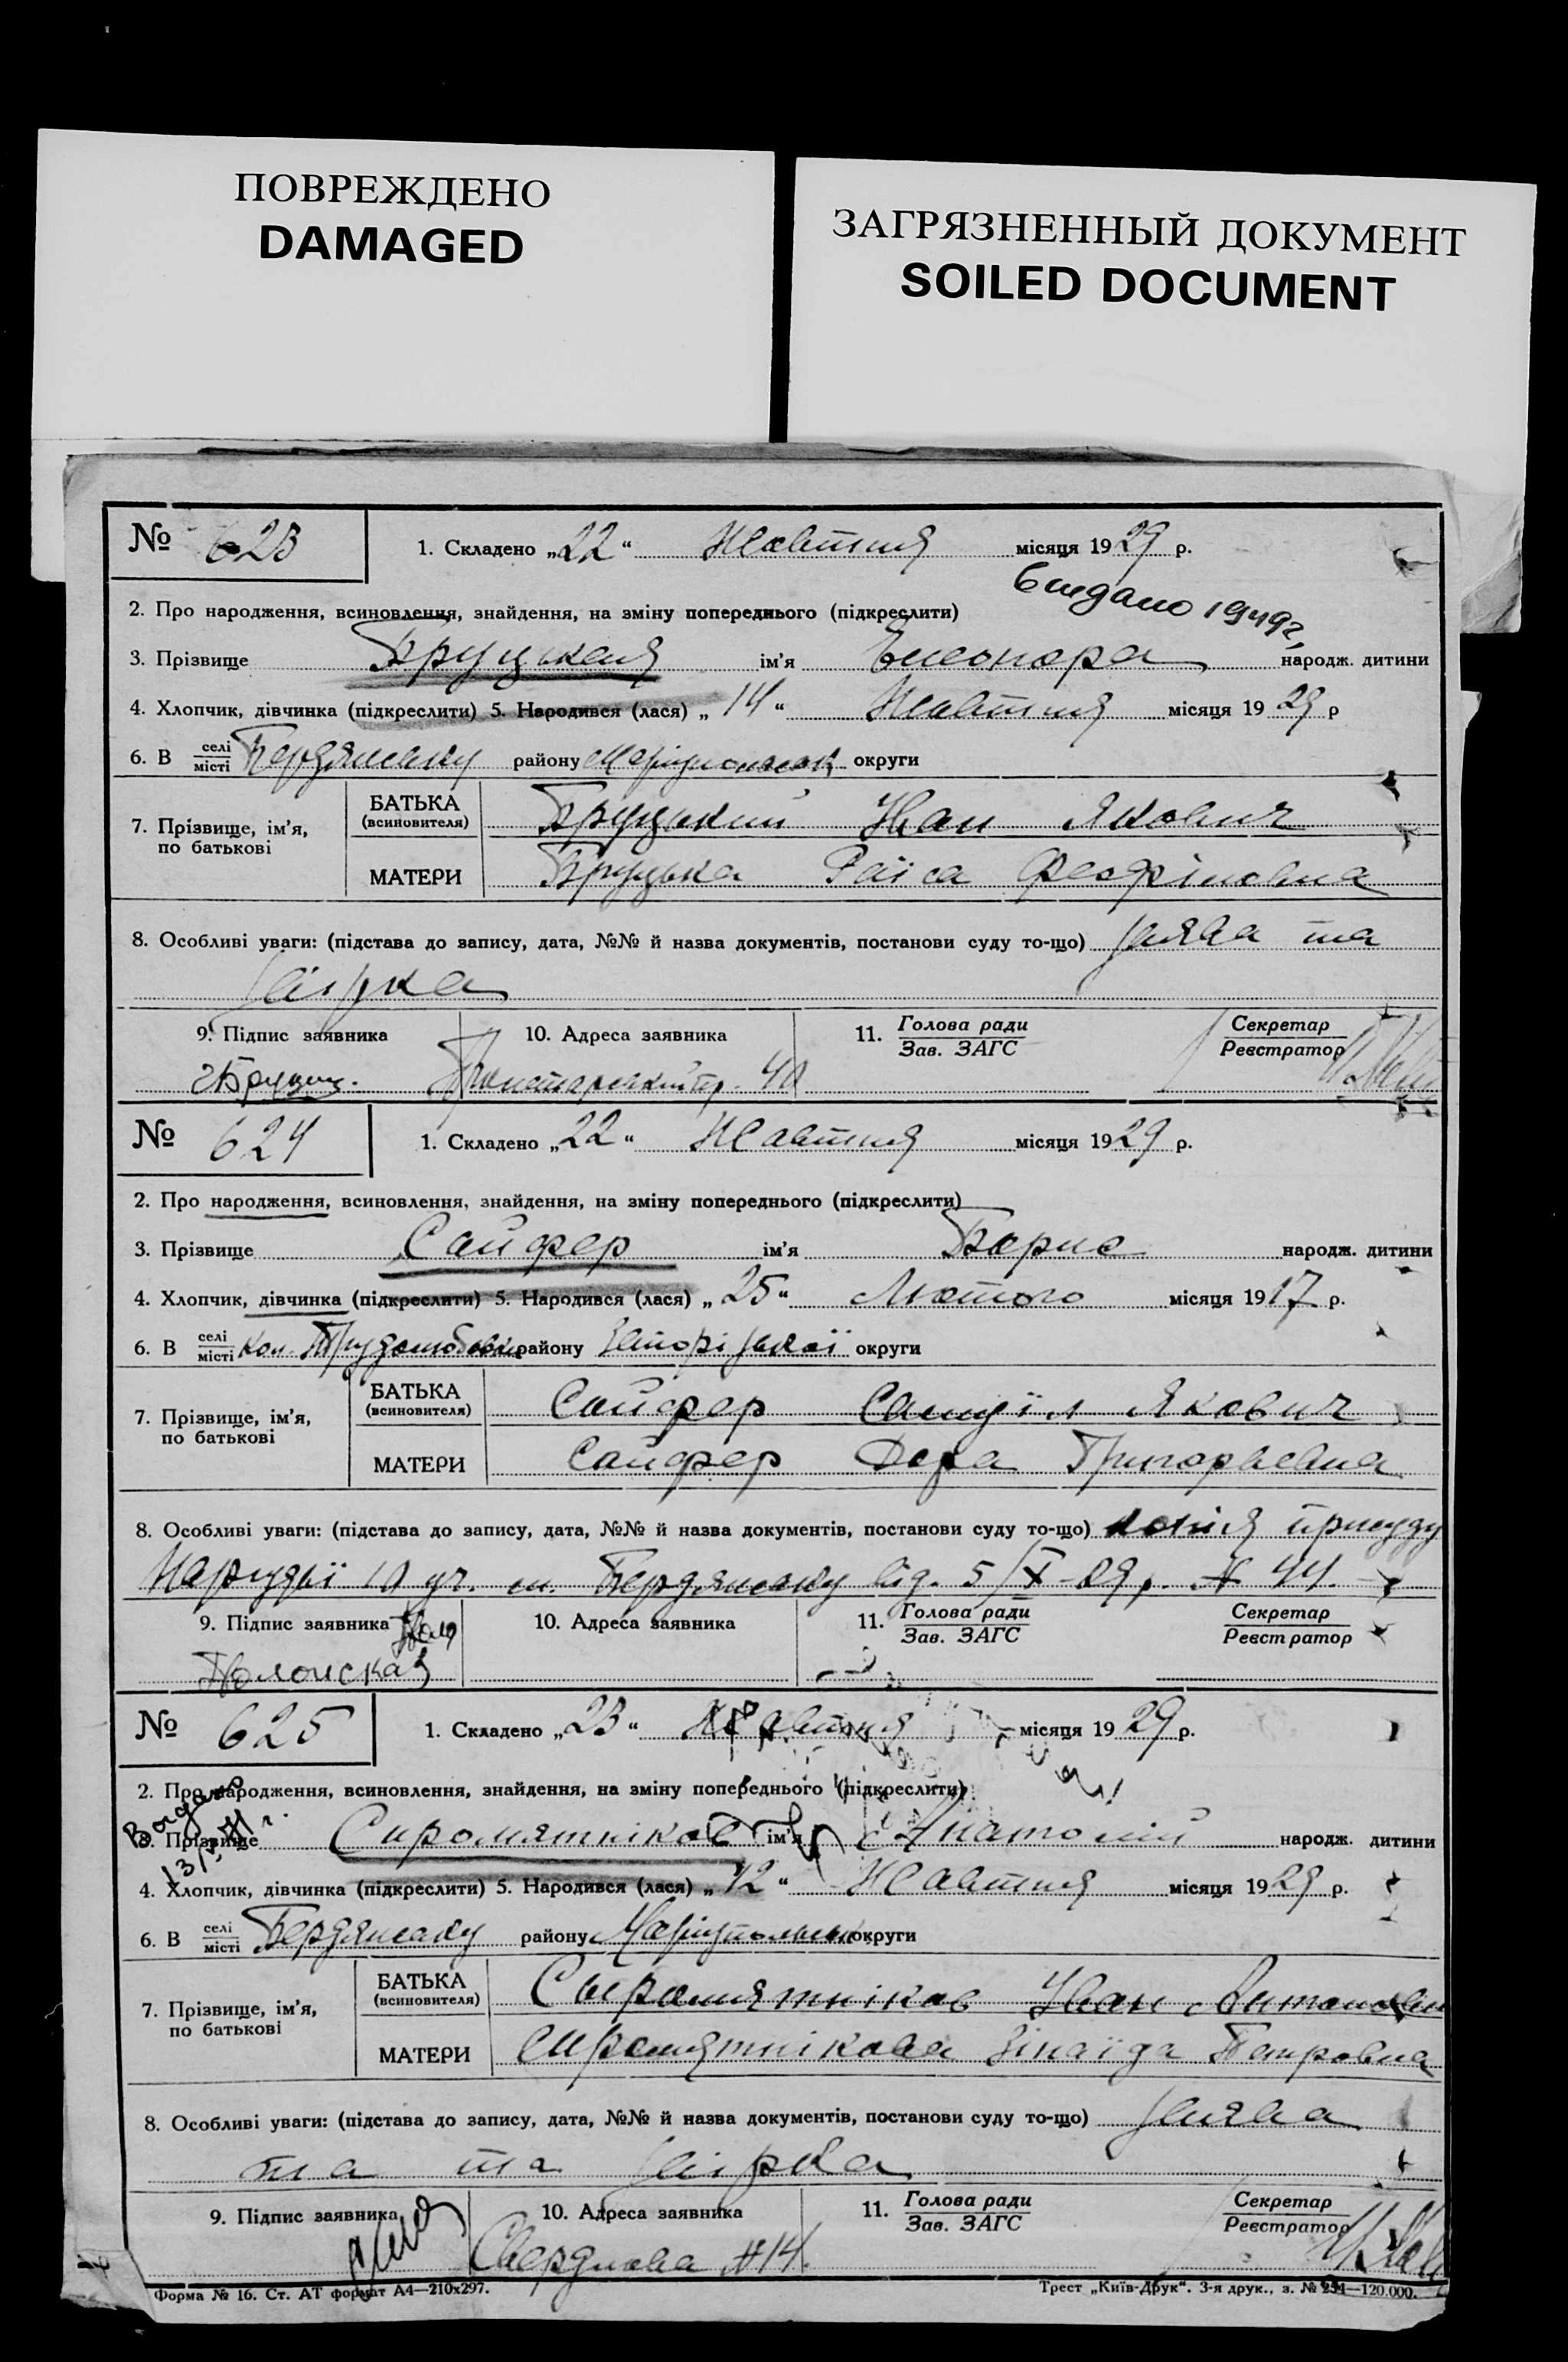 ПОВРЕЖДЕНО
DAMAGED
ЗАГРЯЗНЕННЫЙ ДОКУМЕНТ
SOILED DOCUMENT
№ 623 1. Складено „22“ Жовтня місяця 1929 р.
2. Про народження, всиновлення, знайдення, на зміну попереднього (підкреслити)
3. Прізвище ім'я Елеонора народж. дитини
4. Хлопчик, дівчинка (підкреслити) 5. Народився (лася) „14“ Жовтня місяця 1929 р
6. В селі місті Бердянську району округи
7. Прізвище, ім'я, по батькові
БАТЬКА (всиновителя) Бруцький Иван Якович
МАТЕРИ Бруцька Раїса
8. Особливі уваги: (підстава до запису, дата, №№ й назва документів, постанови суду то-що) заява та
9. Підпис заявника 10. Адреса заявника 11. Голова ради Зав. ЗАГС Секретар Реєстратор
№ 624 1. Складено „22“ Жовтня місяця 1929 р.
2. Про народження, всиновлення, знайдення, на зміну попереднього (підкреслити)
3. Прізвище Сайфер ім'я Борис народж. дитини
4. Хлопчик, дівчинка (підкреслити) 5. Народився (лася) „25“ Лютого місяця 1917 р.
6. В селі місті кол. району округи
7. Прізвище, ім'я, по батькові
БАТЬКА (всиновителя) Сайфер Самуїл Якович
МАТЕРИ Сайфер Дора Григорьевна
8. Особливі уваги: (підстава до запису, дата, №№ й назва документів, постанови суду то-що) копія присуду
Нарсудьї 10 уч. м. Бердянську від. 5/X-29 р. № 44.
9. Підпис заявника 10. Адреса заявника 11. Голова ради Зав. ЗАГС Секретар Реєстратор
Полонская
№ 625 1. Складено „23“ Жовтня місяця 1929 р.
2. Про народження, всиновлення, знайдення, на зміну попереднього (підкреслити)
3. Прізвище Сиромятніков ім'я Анатолій народж. дитини
4. Хлопчик, дівчинка (підкреслити) 5. Народився (лася) „12“ Жовтня місяця 1929 р.
6. В селі місті Бердянську району округи
7. Прізвище, ім'я, по батькові
БАТЬКА (всиновителя) Сыромятніков Иван
МАТЕРИ Сиромятнікова Зінаїда Петровна
8. Особливі уваги: (підстава до запису, дата, №№ й назва документів, постанови суду то-що) заява
та та
9. Підпис заявника 10. Адреса заявника 11. Голова ради Зав. ЗАГС Секретар Реєстратор
Свердлова № 14.
Форма № 16. Ст. АТ формат А4—210х297. Трест „Київ-Друк“. 3-я друк., з. №